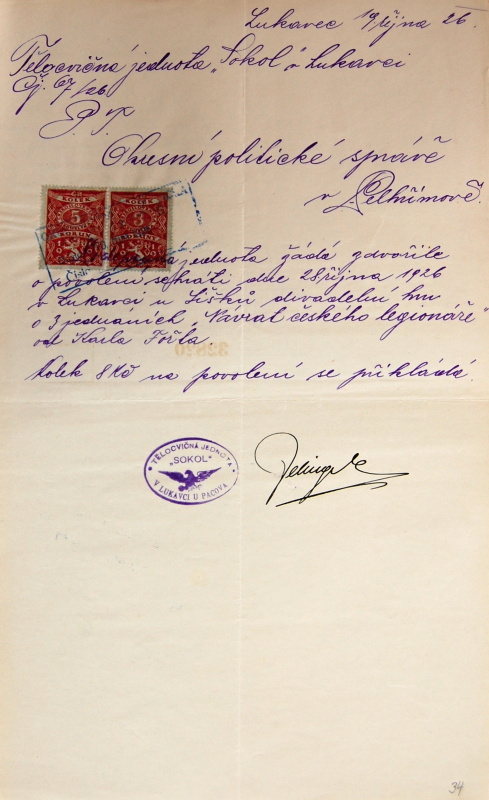 Lukavec 19 října 26.
Tělocvičná jednota „Sokol" v Lukavci
Čj. 67/26
P. T.
Okresní politické správě
v Pelhřimově.
KOLEK KOLEK
5 3
jednota žádá zdvořile
o povolení sehráti dne 28 října 1926
v Lukavci u Šišků divadelní hru
o 3 jednáních „Návrat českého legionáře"
od Karla Fořta.
32820
Kolek 8 Kč na povolení se přikládá.
TĚLOCVIČNÁ JEDNOTA
„SOKOL"
V LUKAVCI U PACOVA
34